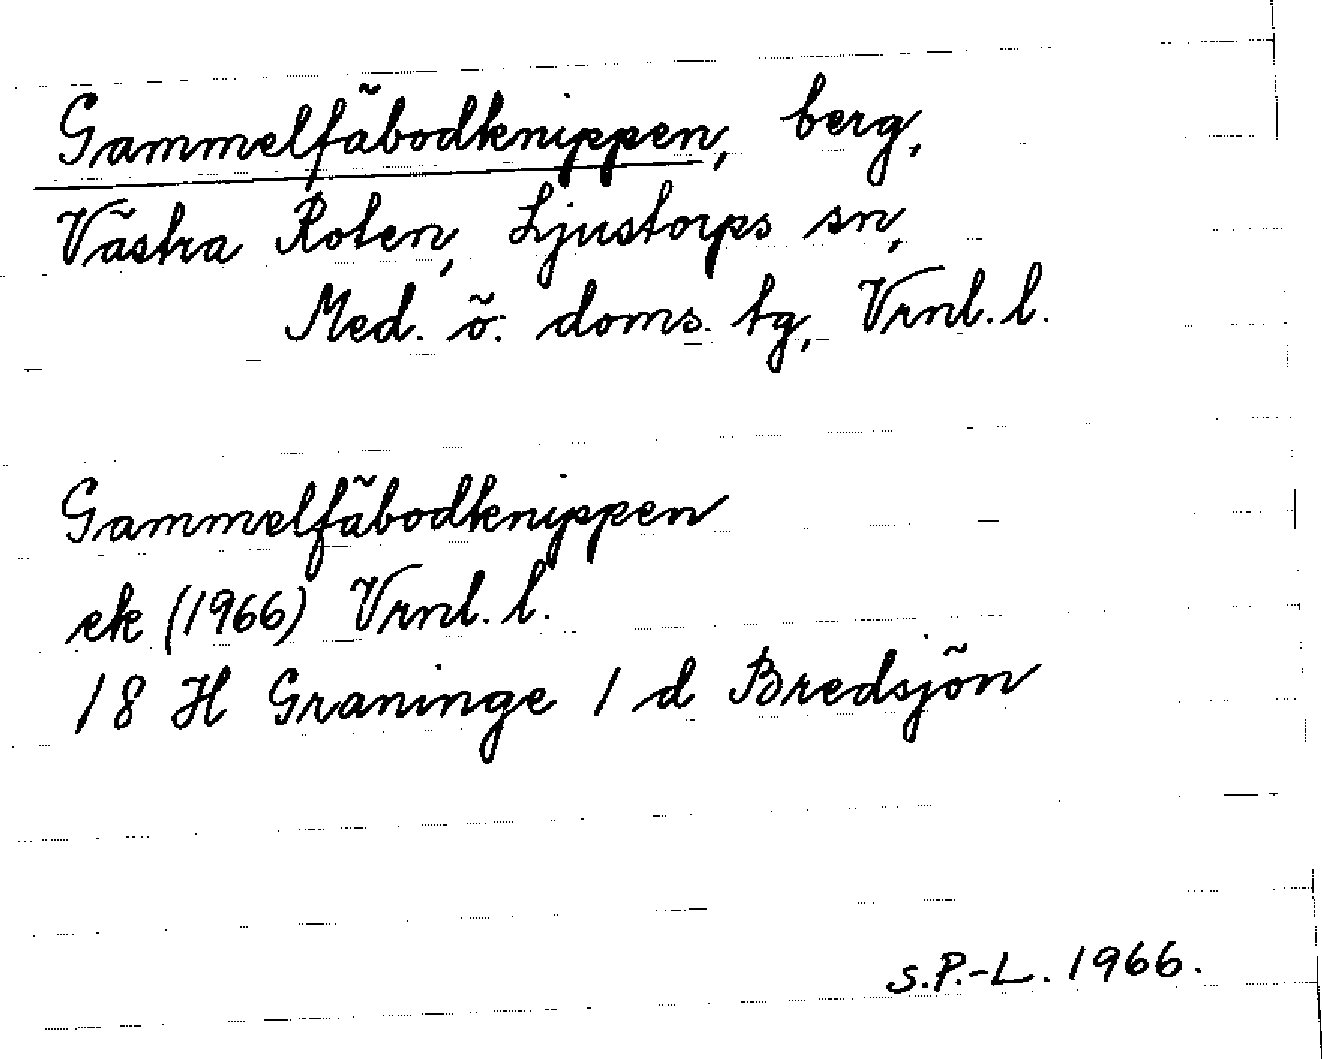 Gammelfäbodknippen, berg,
Västra Roten, Ljustorps sn,
Med. ö. doms. tg, Vrnl. l.
Gammelfäbodknippen
ek (1966) Vrnl. l.
18 H Graninge 1 d Bredsjön
S.P.-L. 1966.